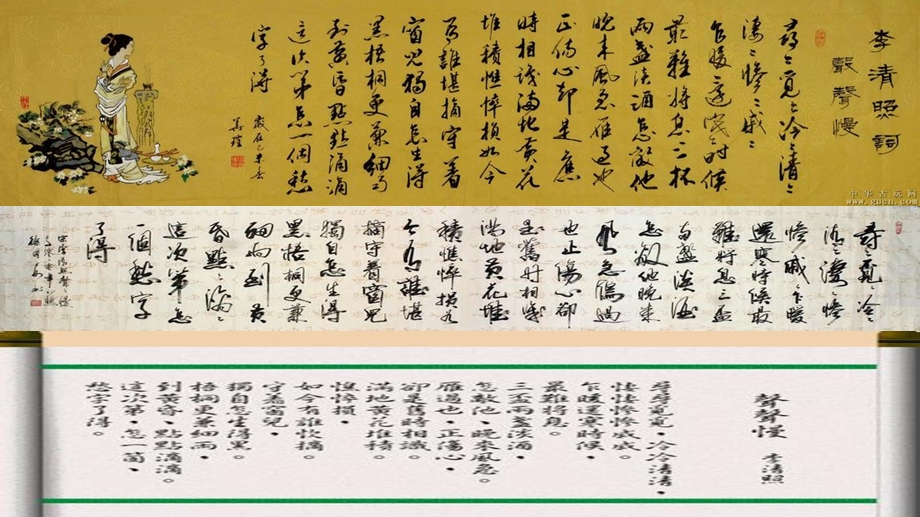 李清照詞
聲聲慢
尋〻覓〻冷〻清〻
淒〻慘〻戚〻
乍暖還寒時候
最難將息三杯
兩盞淡酒怎敵他
晚來風急雁過也
正傷心卻是舊
時相識滿地黃花
堆積憔悴損如今
有誰堪摘守著
窗兒獨自怎生得
黑梧桐更兼細雨
到黃昏點點滴滴
這次第怎一個愁
字了得
中华古玩网
www.gucn.com
尋覓冷〻
清〻淒慘
慘戚乍暖
還寒時候最
難將息三盃
兩盞淡酒
怎敵他晚來
風急雁過
也正傷心卻
是舊時相識
滿地黃花堆
積憔悴損如
今有誰堪
摘守著窗兒
獨自怎生得
黑梧桐更兼
細雨到黃
昏點〻滴〻
這次第怎
一個愁字
了得
聲聲慢
李清照
尋尋覓覓，冷冷清清，
悽悽慘慘戚戚。
乍暖還寒時候，
最難將息。
三杯兩盞淡酒，
怎敵他，晚來風急。
雁過也，正傷心，
卻是舊時相識。
滿地黃花堆積。
憔悴損，
如今有誰忺摘。
守著窗兒，
獨自怎生得黑。
梧桐更兼細雨，
到黃昏，點點滴滴。
這次第，怎一箇，
愁字了得。